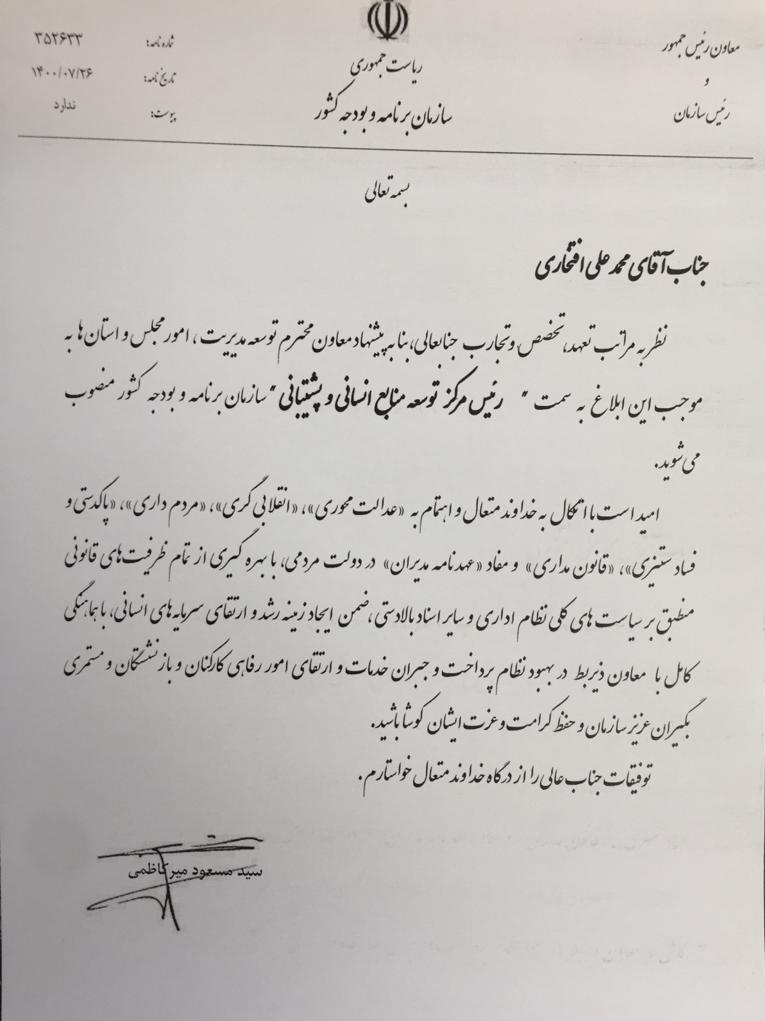 معاون رئیس جمهور
و
رئیس سازمان
ریاست جمهوری
سازمان برنامه و بودجه کشور
شماره نامه: ۳۵۲۶۳۳
تاریخ نامه: ۱۴۰۰/۰۷/۲۶
پیوست: ندارد
بسمه تعالی
جناب آقای محمد علی افتخاری
نظر به مراتب تعهد، تخصص و تجارب جنابعالی، بنا به پیشنهاد معاون محترم توسعه مدیریت، امور مجلس و استان ها به
موجب این ابلاغ به سمت " رئیس مرکز توسعه منابع انسانی و پشتیبانی " سازمان برنامه و بودجه کشور منصوب
می شوید.
امید است با اتکال به خداوند متعال و اهتمام به «عدالت محوری»، «انقلابی گری»، «مردم داری»، «پاکدستی و
فساد ستیزی»، «قانون مداری» و مفاد «عهدنامه مدیران» در دولت مردمی، با بهره گیری از تمام ظرفیت های قانونی
منطبق بر سیاست های کلی نظام اداری و سایر اسناد بالادستی، ضمن ایجاد زمینه رشد و ارتقای سرمایه های انسانی، با هماهنگی
کامل با معاون ذیربط در بهبود نظام پرداخت و جبران خدمات و ارتقای امور رفاهی کارکنان و بازنشستگان و مستمری
بگیران عزیز سازمان و حفظ کرامت و عزت ایشان کوشا باشید.
توفیقات جناب عالی را از درگاه خداوند متعال خواستارم.
سید مسعود میرکاظمی